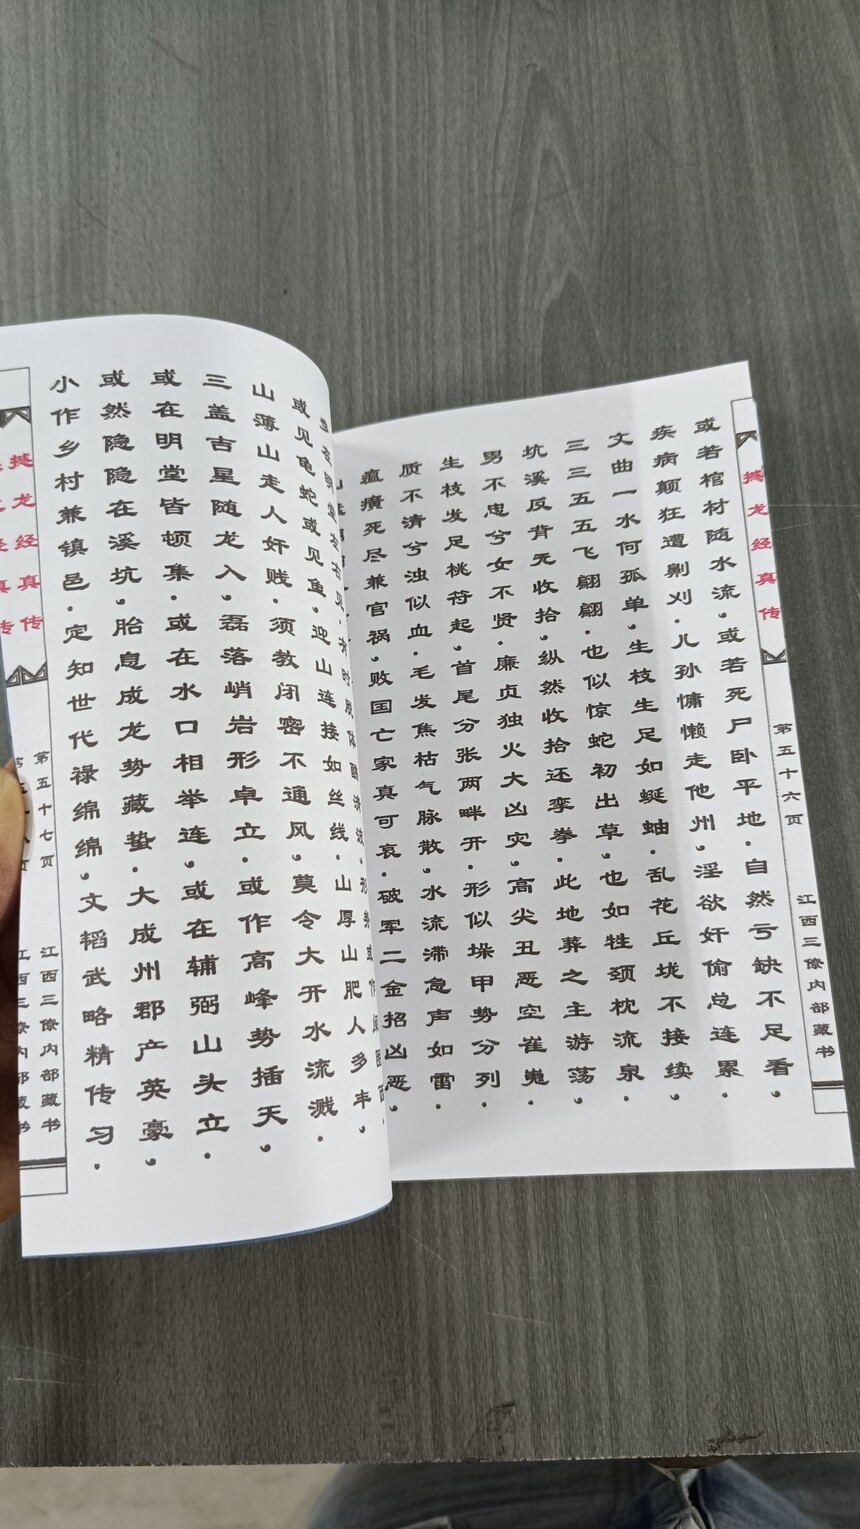 撼龙经真传
第五十六页
江西三僚内部藏书
或若棺材随水流，或若死尸卧平地．自然亏缺不足看，
疾病颠狂遭劓刈．儿孙慵懒走他州，淫欲奸偷总连累．
文曲一水何孤单，生枝生足如蜒蚰．乱花丘垅不接续．
三三五五飞翩翩．也似惊蛇初出草，也如牲颈枕流泉．
坑溪反背无收拾，纵然收拾还挛拳．此地葬之主游荡．
男不忠兮女不贤．廉贞独火大凶灾，高尖丑恶空崔嵬．
生枝发足桃符起，首尾分张两畔开．形似垛甲势分列．
质不清兮浊似血．毛发焦枯气脉散，水流滞急声如雷．
瘟癀死尽兼官祸，败国亡家真可哀．破军二金招凶恶，
或见龟蛇或见鱼，迎山连接如丝线．山厚山肥人多丰，
山薄山走人奸贱．须教闭密不通风，莫令大开水流溅．
三盖吉星随龙入，磊落峭岩形卓立．或作高峰势插天，
或在明堂皆顿集．或在水口相举连，或在辅弼山头立．
或然隐隐在溪坑，胎息成龙势藏蛰．大成州郡产英豪，
小作乡村兼镇邑．定知世代禄绵绵，文韬武略精传习．
撼龙经真传
第五十七页
江西三僚内部藏书